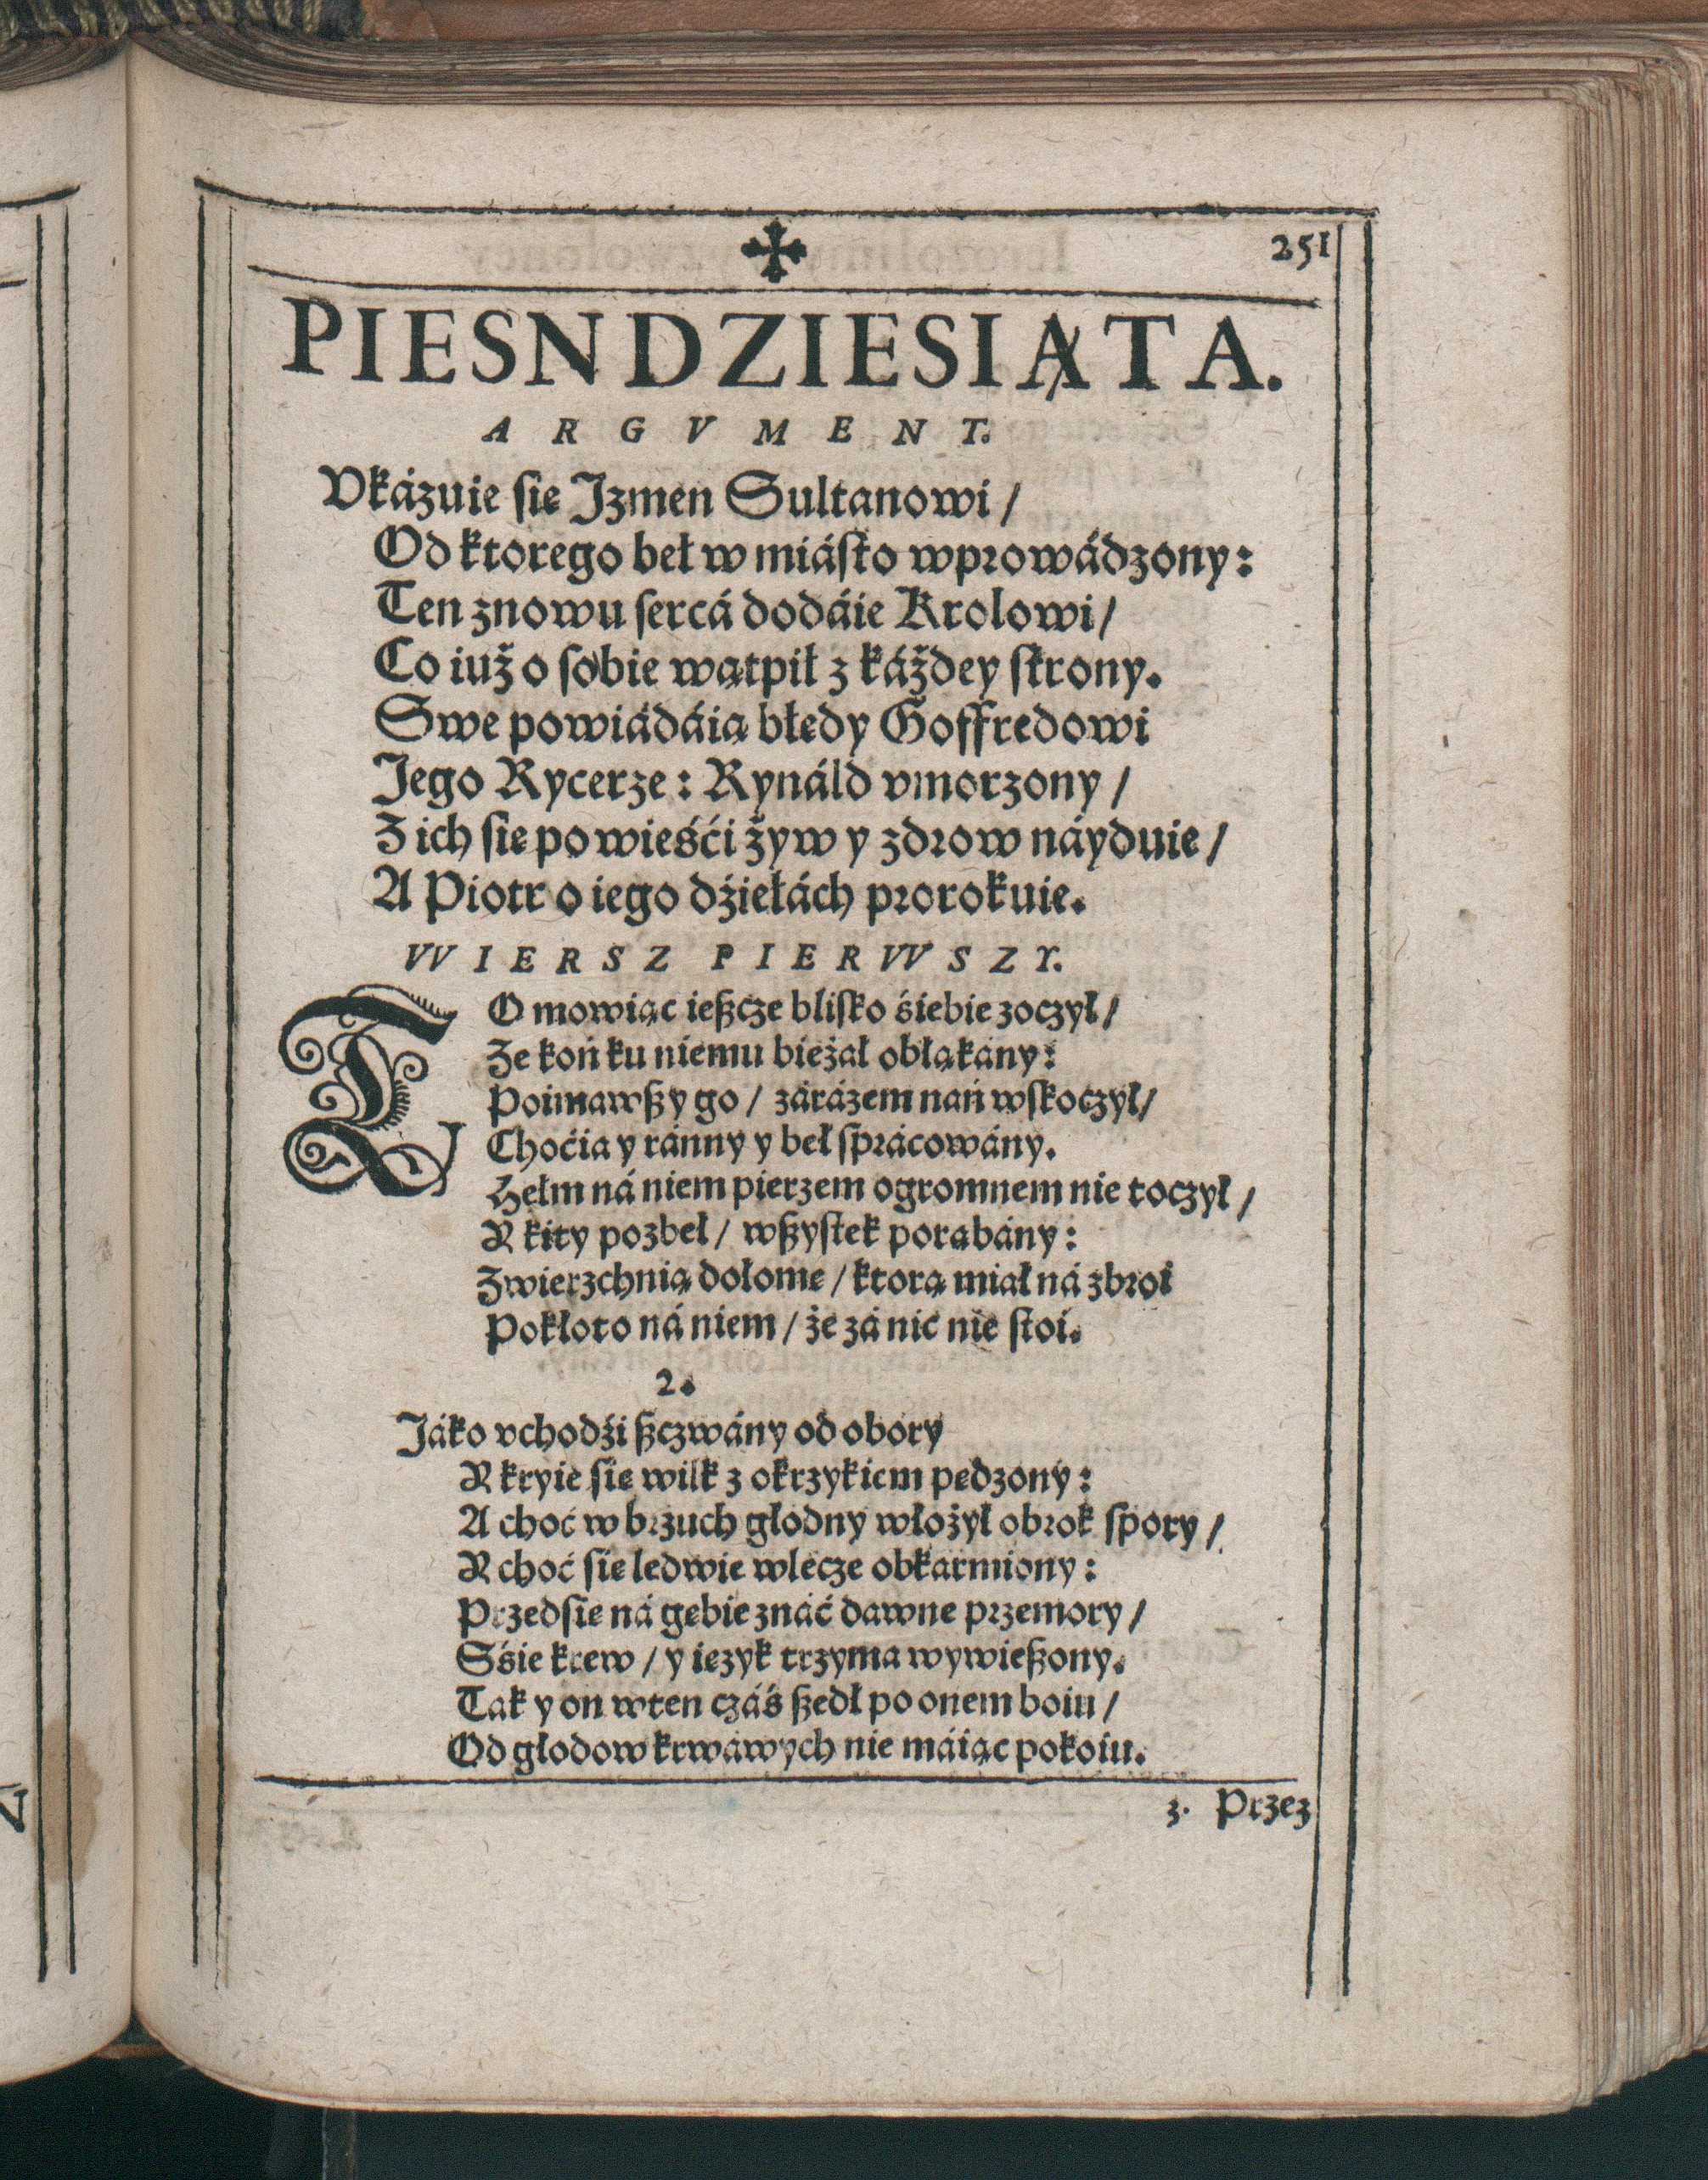 251
PIESN DZIESIĄTA.
ARGVMENT.
Vkázuie ſię Jzmen Sultanowi /
Od ktorego beł w miáſto wprowádzony:
Ten znowu ſercá dodáie Krolowi /
Co iuż o ſobie wątpił z káżdey ſtrony.
Swe powiádáią błędy Goffredowi
Jego Rycerze: Rynáld vmorzony /
Z ich ſię powieśći żyw y zdrow náyduie /
A Piotr o iego dźiełách prorokuie.
WIERSZ PIERWSZY.
TO mowiąc ießcze bliſko śiebie zoczył /
Że koń ku niemu bieżał obłąkány:
Poimawßy go / zárázem nań wſkoczył /
Choćia y ránny y beł ſprácowány.
Hełm ná niem pierzem ogromnem nie toczył /
Y kity pozbeł / wßyſtek porąbány:
Zwierzchnią dołomę / ktorą miał ná zbroi
Pokłoto ná niem / że zá nic nie ſtoi.
2.
Jáko vchodźi ßczwány od obory
Y kryie ſię wilk z okrzykiem pędzony:
A choć w brzuch głodny włożył obrok ſpory /
Y choć ſię ledwie wlecze obkarmiony:
Przedſię ná gębie znáć dawne przemory /
Sśie krew / y ięzyk trzyma wywießony.
Tak y on w ten czáś ßedł po onem boiu /
Od głodow krwáwych nie máiąc pokoiu.
3. Przez